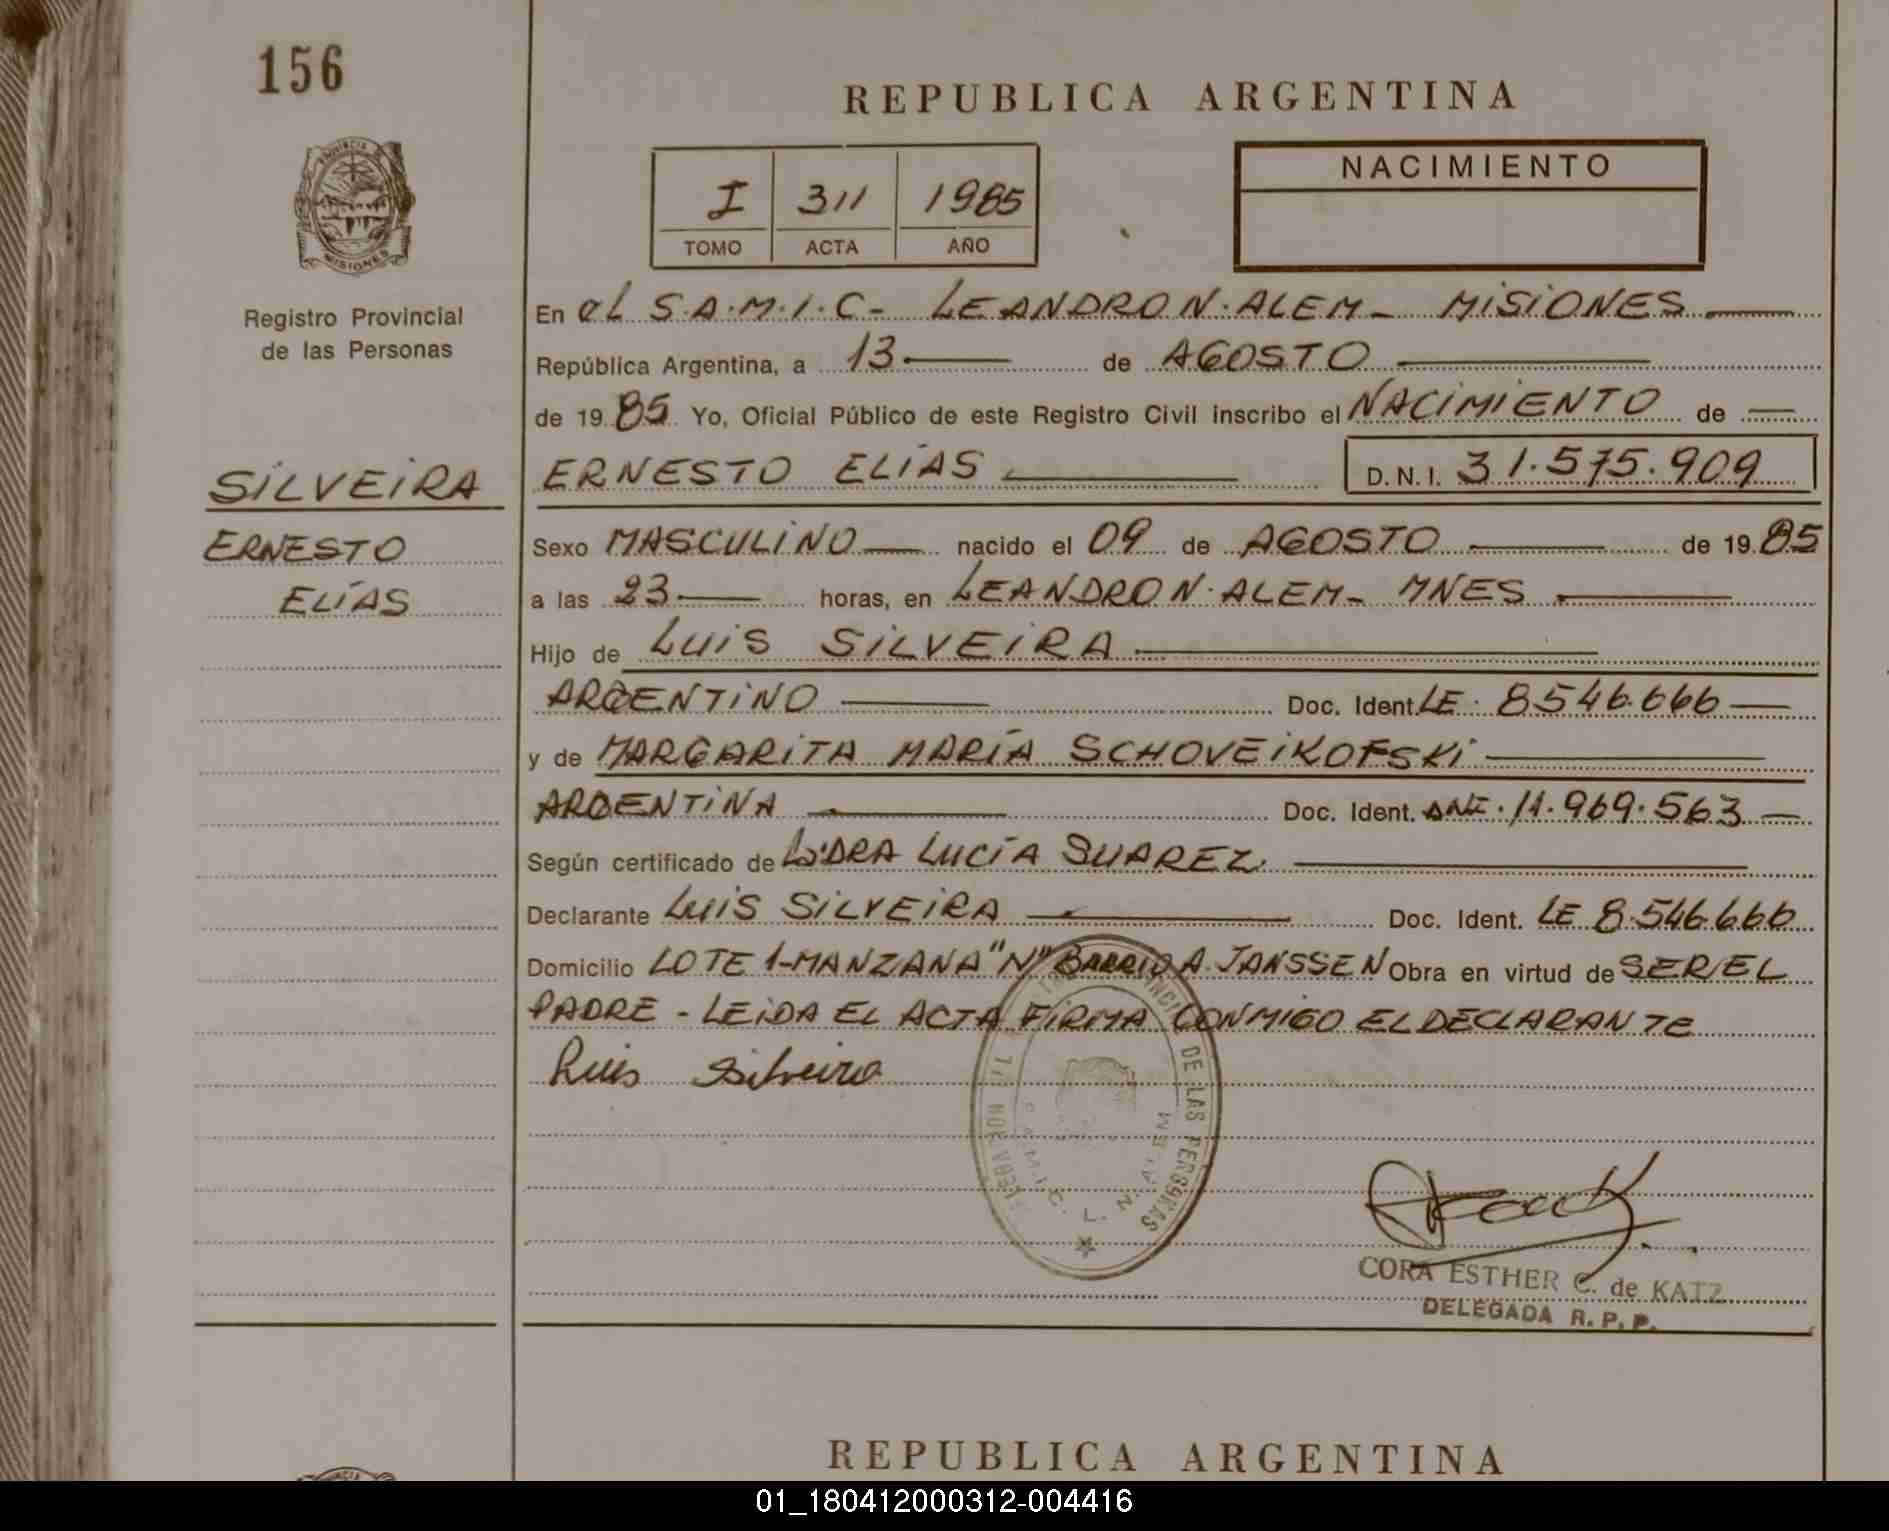 156
REPUBLICA ARGENTINA
PROVINCIA DE
MISIONES
I 311 1985
TOMO ACTA AÑO
NACIMIENTO
Registro Provincial
de las Personas
En el S.A.M.I.C- LEANDRO N. ALEM- MISIONES
República Argentina, a 13 de AGOSTO
de 1985 Yo, Oficial Público de este Registro Civil inscribo el NACIMIENTO de
SILVEIRA
ERNESTO
ELÍAS
ERNESTO ELÍAS D.N.I. 31.575.909
Sexo MASCULINO nacido el 09 de AGOSTO de 1985
a las 23 horas, en LEANDRO N. ALEM- MNES
Hijo de LUIS SILVEIRA
ARGENTINO Doc. Ident. LE. 8.546.666
y de MARGARITA MARÍA SCHOVEIKOFSKI
ARGENTINA Doc. Ident. DNI. 11.969.563
Según certificado de DRA LUCÍA SUAREZ.
Declarante LUIS SILVEIRA Doc. Ident. LE 8.546.666
Domicilio LOTE 1-MANZANA "N" BARRIO A. JANSSEN Obra en virtud de SER EL
PADRE - LEIDA EL ACTA FIRMA CONMIGO EL DECLARANTE
Luis Silveira
DE LAS PERSONAS
S.A.M.I.C. L. N. ALEM
CORA ESTHER C. de KATZ
DELEGADA R. P. P.
REPUBLICA ARGENTINA
01_180412000312-004416